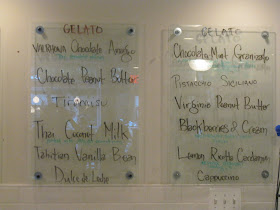 GELATO
Chocolate
Chocolate Peanut Butter
Tiramisu
Thai Coconut Milk
Tahitian Vanilla Bean
Dulce de Leche
GELATO
Chocolate Mint
Pistacchio Siciliano
Virginia Peanut Butter
Blackberries & Cream
Lemon Ricotta Cardamom
Cappuccino